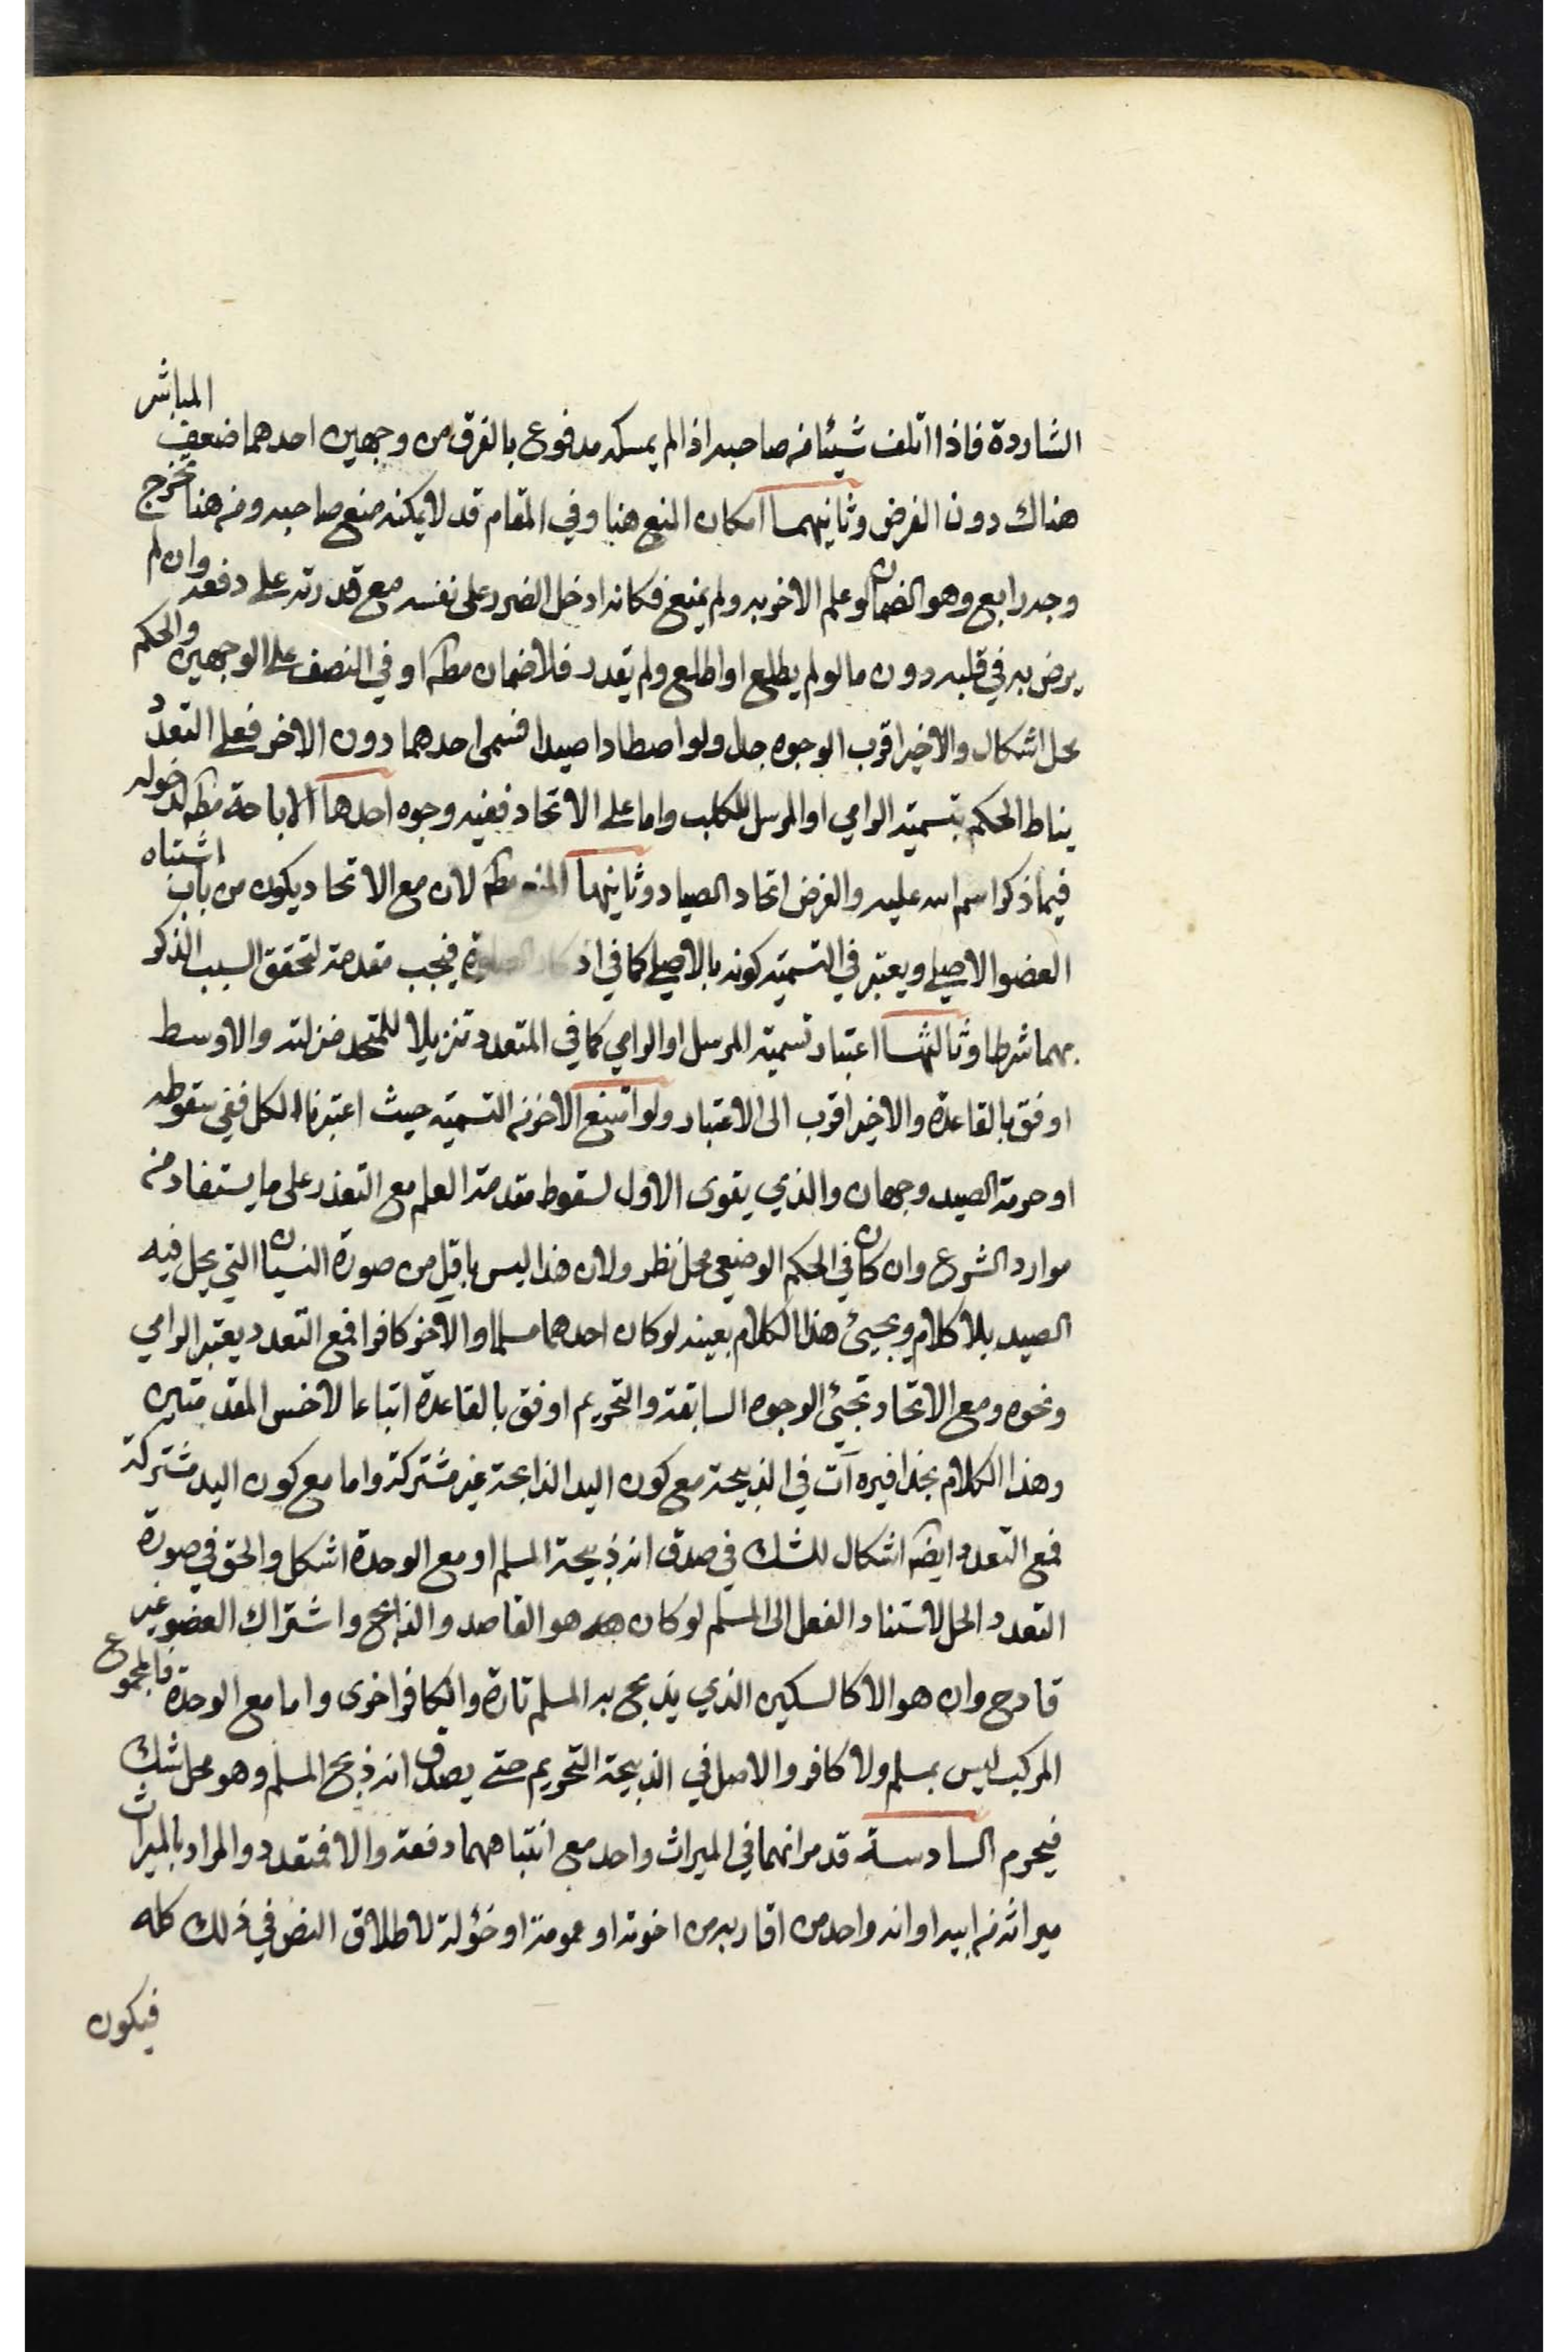 الشاردة فاذا اتلف شيئا ضمنه صاحبه اذا لم يمسكه مدفوع بالفرق من وجهين احدهما ضعف المباشر
هناك دون الفرض وثانيهما امكان المنع هنا وفي المقام قد لا يمكنه منع صاحبه ومن هنا تخرج
وجه رابع وهو الضمان لو علم الاخر به ولم يمنع فكانه ادخل الضرر على نفسه مع قدرته على دفعه وان لم
يرض به في قلبه دون ما لو لم يطلع او اطلع ولم يقدر فلا ضمان مطه او في النصف على الوجهين والحكم
محل اشكال والاخير اقرب الوجوه جل ولو اصطادا صيدا فسمى احدهما دون الاخر فعلى التعدد
يناط الحكم بتسمية الرامي او المرسل للكلب واما على الاتحاد ففيه وجوه احدها الاباحة مطه لدخوله
فيما ذكر اسم الله عليه والفرض اتحاد الصياد وثانيها المنع مطه لان مع الاتحاد يكون من باب اشتباه
العضو الاصلي ويعتبر في التسمية كونه بالاصلي كما في اذكار الصلوة فيجب مقدمة لتحقق السبب الذكر
بهما شرطا وثالثها اعتبار تسمية المرسل او الرامي كما في المتعدد تنزيلا للمتحد منزلته والاوسط
اوفق بالقاعدة والاخير اقرب الى الاعتبار ولو امتنع الاخر من التسمية حيث اعتبرنا الكل ففي سقوطه
او حرمة الصيد وجهان والذي يقوى الاول لسقوط مقدمة العلم مع التعذر على ما يستفاد من
موارد الشرع وان كان في الحكم الوضعي محل نظر ولان هذا ليس باقل من صورة النسيان التي يحل فيه
الصيد بلا كلام ويجيئ هذا الكلام بعينه لو كان احدهما مسلما والاخر كافرا فمع التعدد يعتبر الرامي
ونحوه ومع الاتحاد تجئ الوجوه السابقة والتحريم اوفق بالقاعدة اتباعا لاخس المقدمتين
وهذا الكلام بحذافيره آت في الذبيحة مع كون اليد الذابحة غير مشتركة واما مع كون اليد مشتركة
فمع التعدد ايضه اشكال للشك في صدق انه ذبيحة المسلم او مع الوحدة اشكل والحق في صورة
التعدد الحل لاستناد الفعل الى المسلم لو كان هو القاصد والذابح واشتراك العضو غير
قادح وان هو الا كالسكين الذي يذبح به المسلم تارة والكافر اخرى واما مع الوحدة فالمجموع
المركب ليس بمسلم ولا كافر والاصل في الذبيحة التحريم حتى يصدق انه ذبح المسلم وهو محل شك
فيحرم السادسة قد مر انهما في الميراث واحد مع انتباههما دفعة والا فمتعدد والمراد بالميراث
ميراثه من ابيه او انه واحد من اقاربه من اخوته او عمومته او خؤلته لاطلاق النص في ذلك كله
فيكون